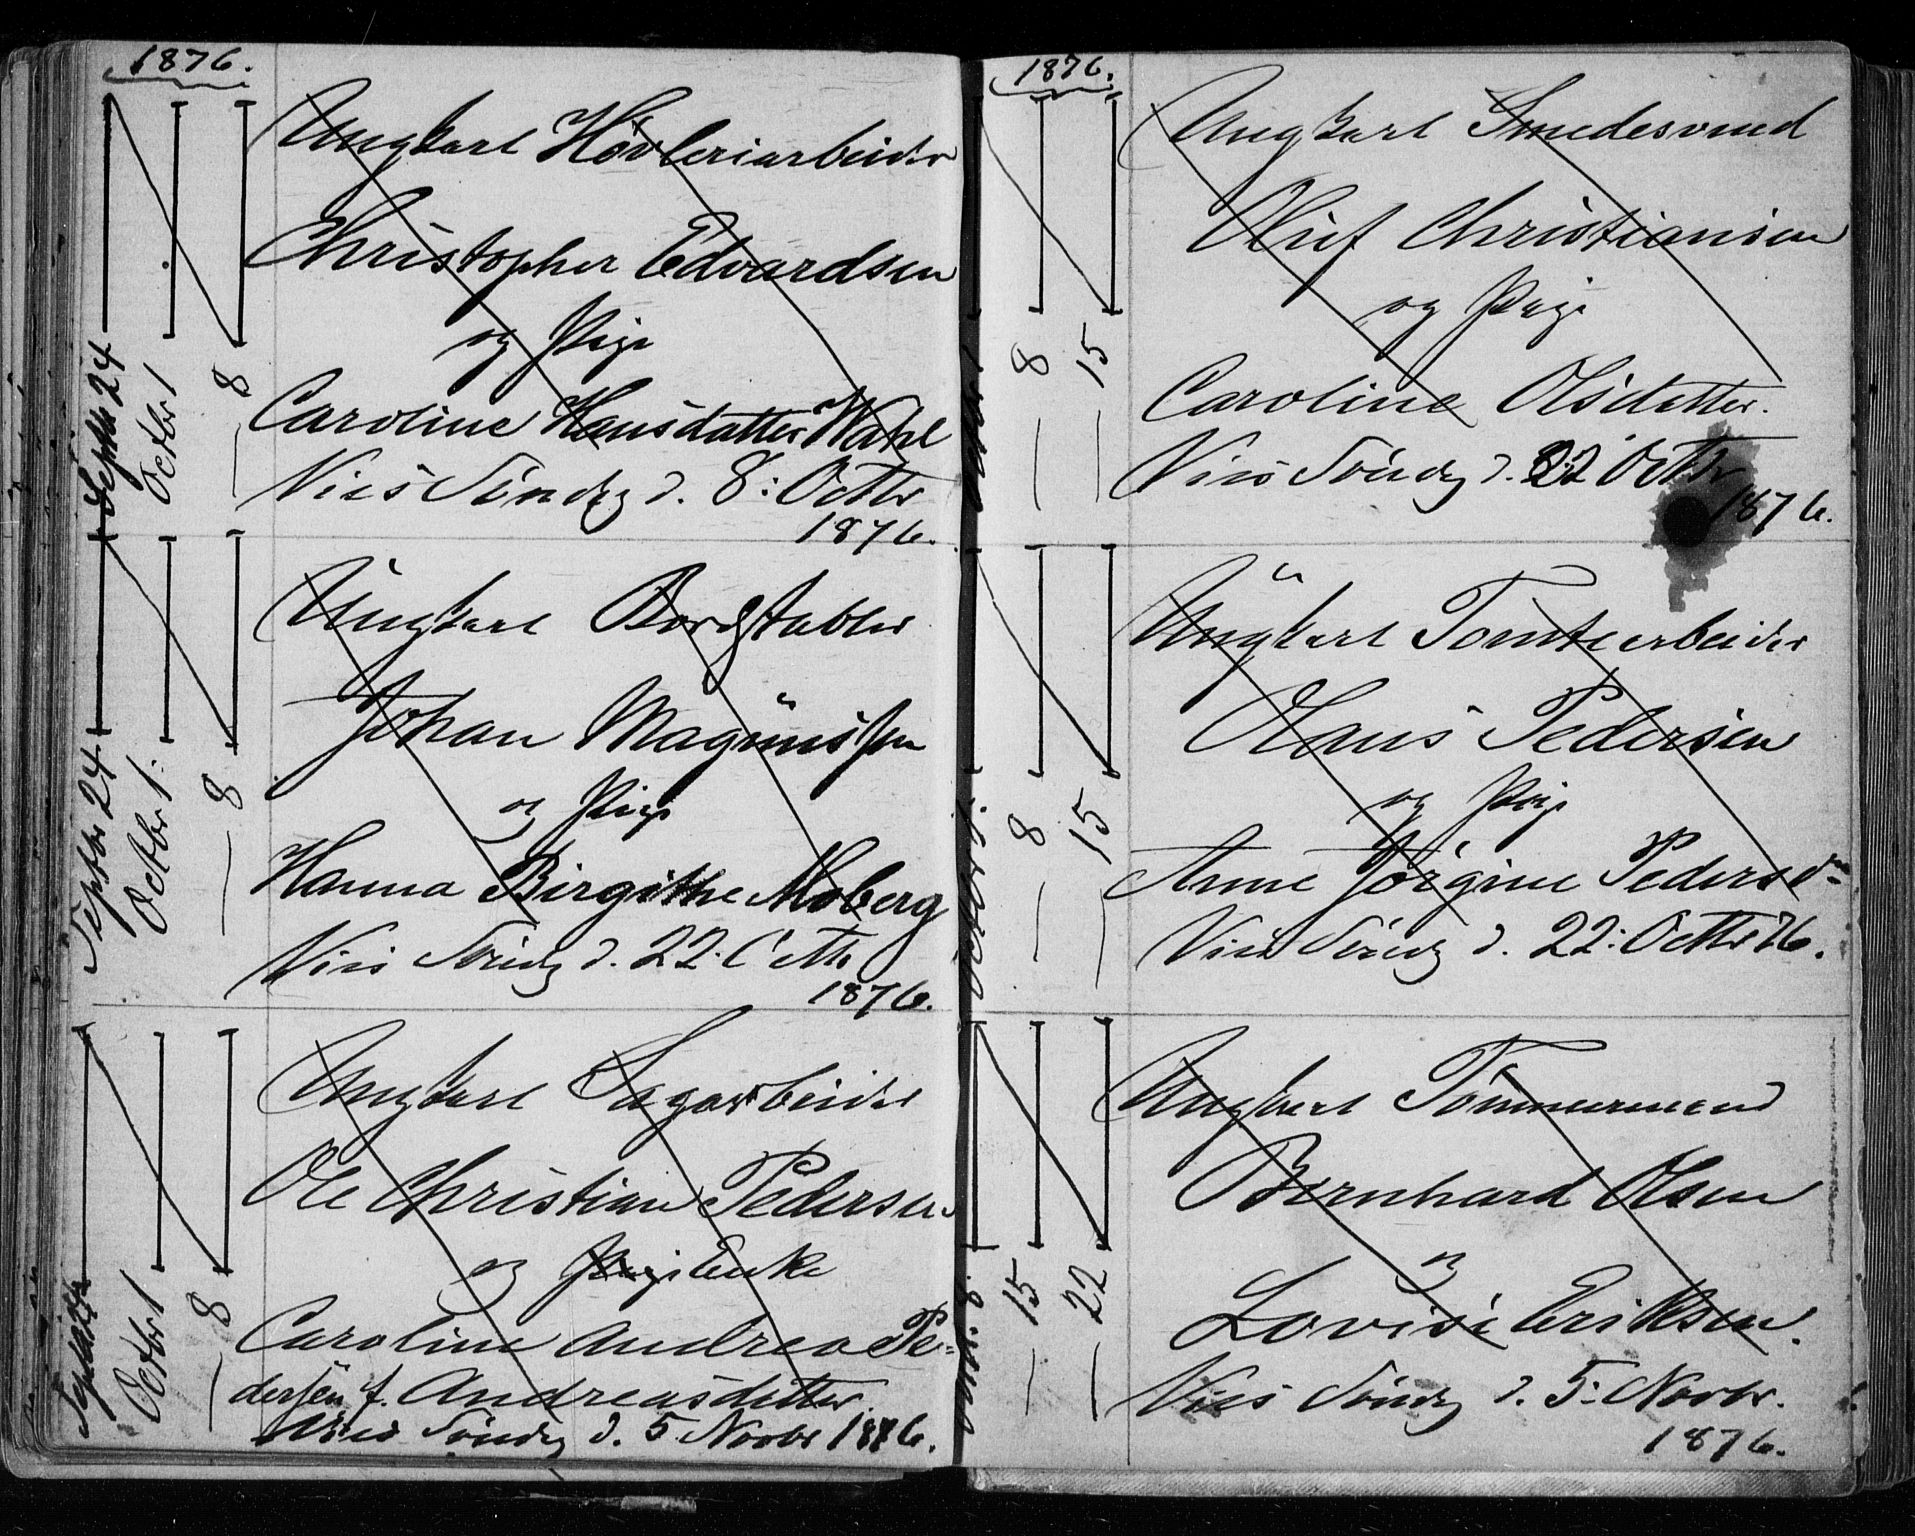 1876.
Septbr 24
Octbr 1
— 8
Ungkarl Høvleriarbeider
Christopher Edvardsen
og Pige
Caroline Hansdatter Wahl
Vies Søndg d. 8: Octbr
1876.
Septbr 24
Octbr 1:
— 8
Ungkarl Bordstabler
Johan Magnüssen
og Pige
Hanna Birgithe Moberg
Vies Søndg d. 22. Octbr
1876.
Septbr 24
Octbr 1
— 8
Ungkarl Sagarbeider
Ole Christian Pedersen
og Pige Enke
Caroline Andrea Pe-
dersen f. Andreasdatter.
Vies Søndg d. 5 Novbr 1876.
1876.
Octbr 1
— 8
— 15
Ungkarl Smedesvend
Oluf Christiansen
og Pige
Caroline Olsdatter.
Vies Søndg d. 22 Octbr
1876.
— 8
— 15
Ungkarl Tomtearbeider
Hans Pedersen
og Pige
Anne Jørgine Pedersdr
Vies Søndg d. 22: Octbr 76.
Octbr 8
— 15
— 22
Ungkarl Tømmermand
Bernhard Olsen
og
Lovise Eriksen.
Vies Søndg d. 5: Novbr.
1876.